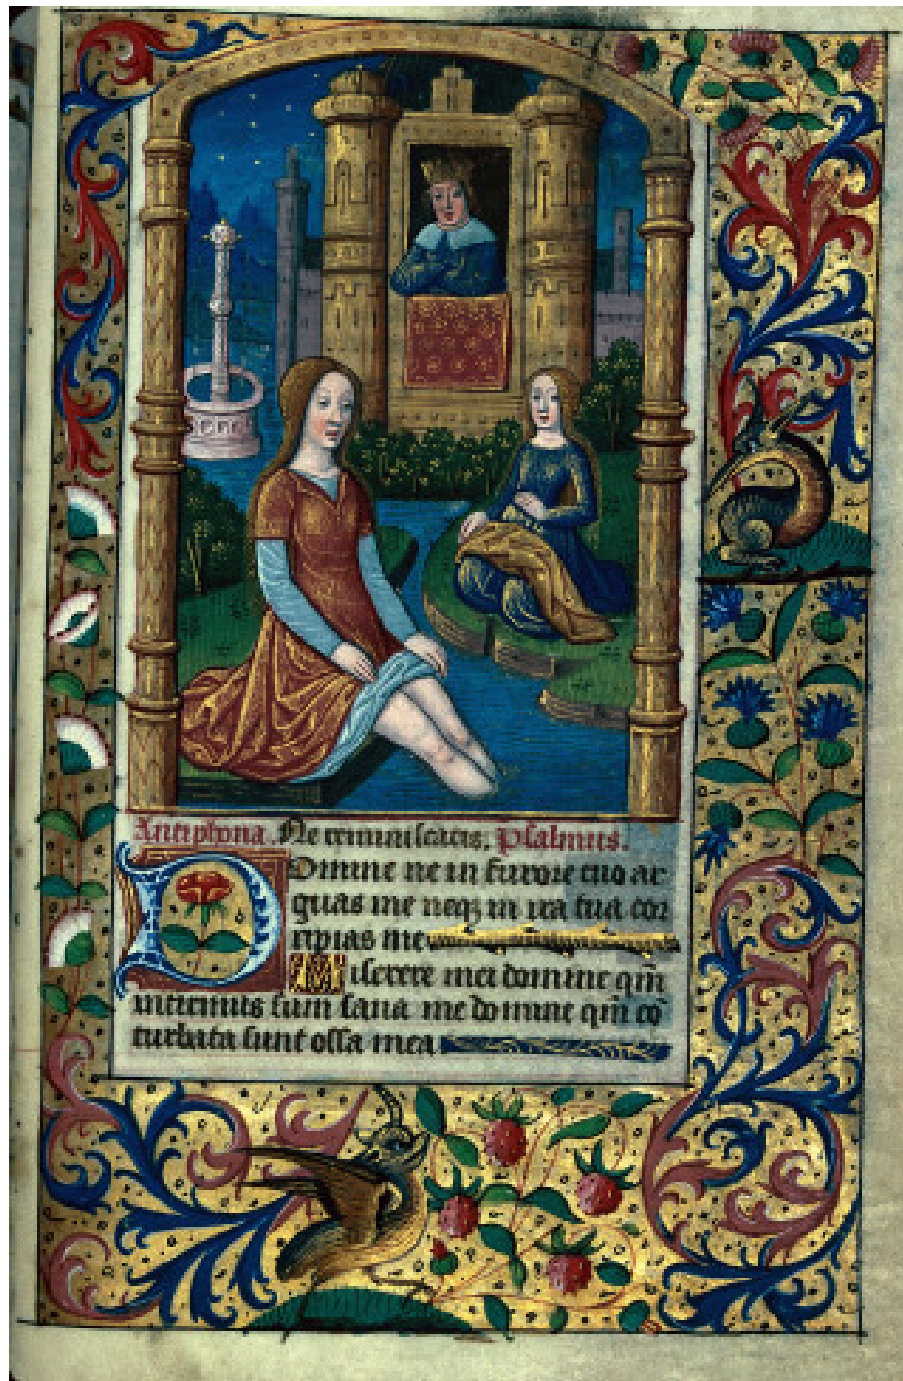 Antiphona. Ne reminiscaris. Psalmus.
Domine ne in furore tuo ar
guas me neqꝫ in ira tua cor
ripias me
Miserere mei domine qm̃
infirmus sum sana me domine qm̃ cō
turbata sunt ossa mea